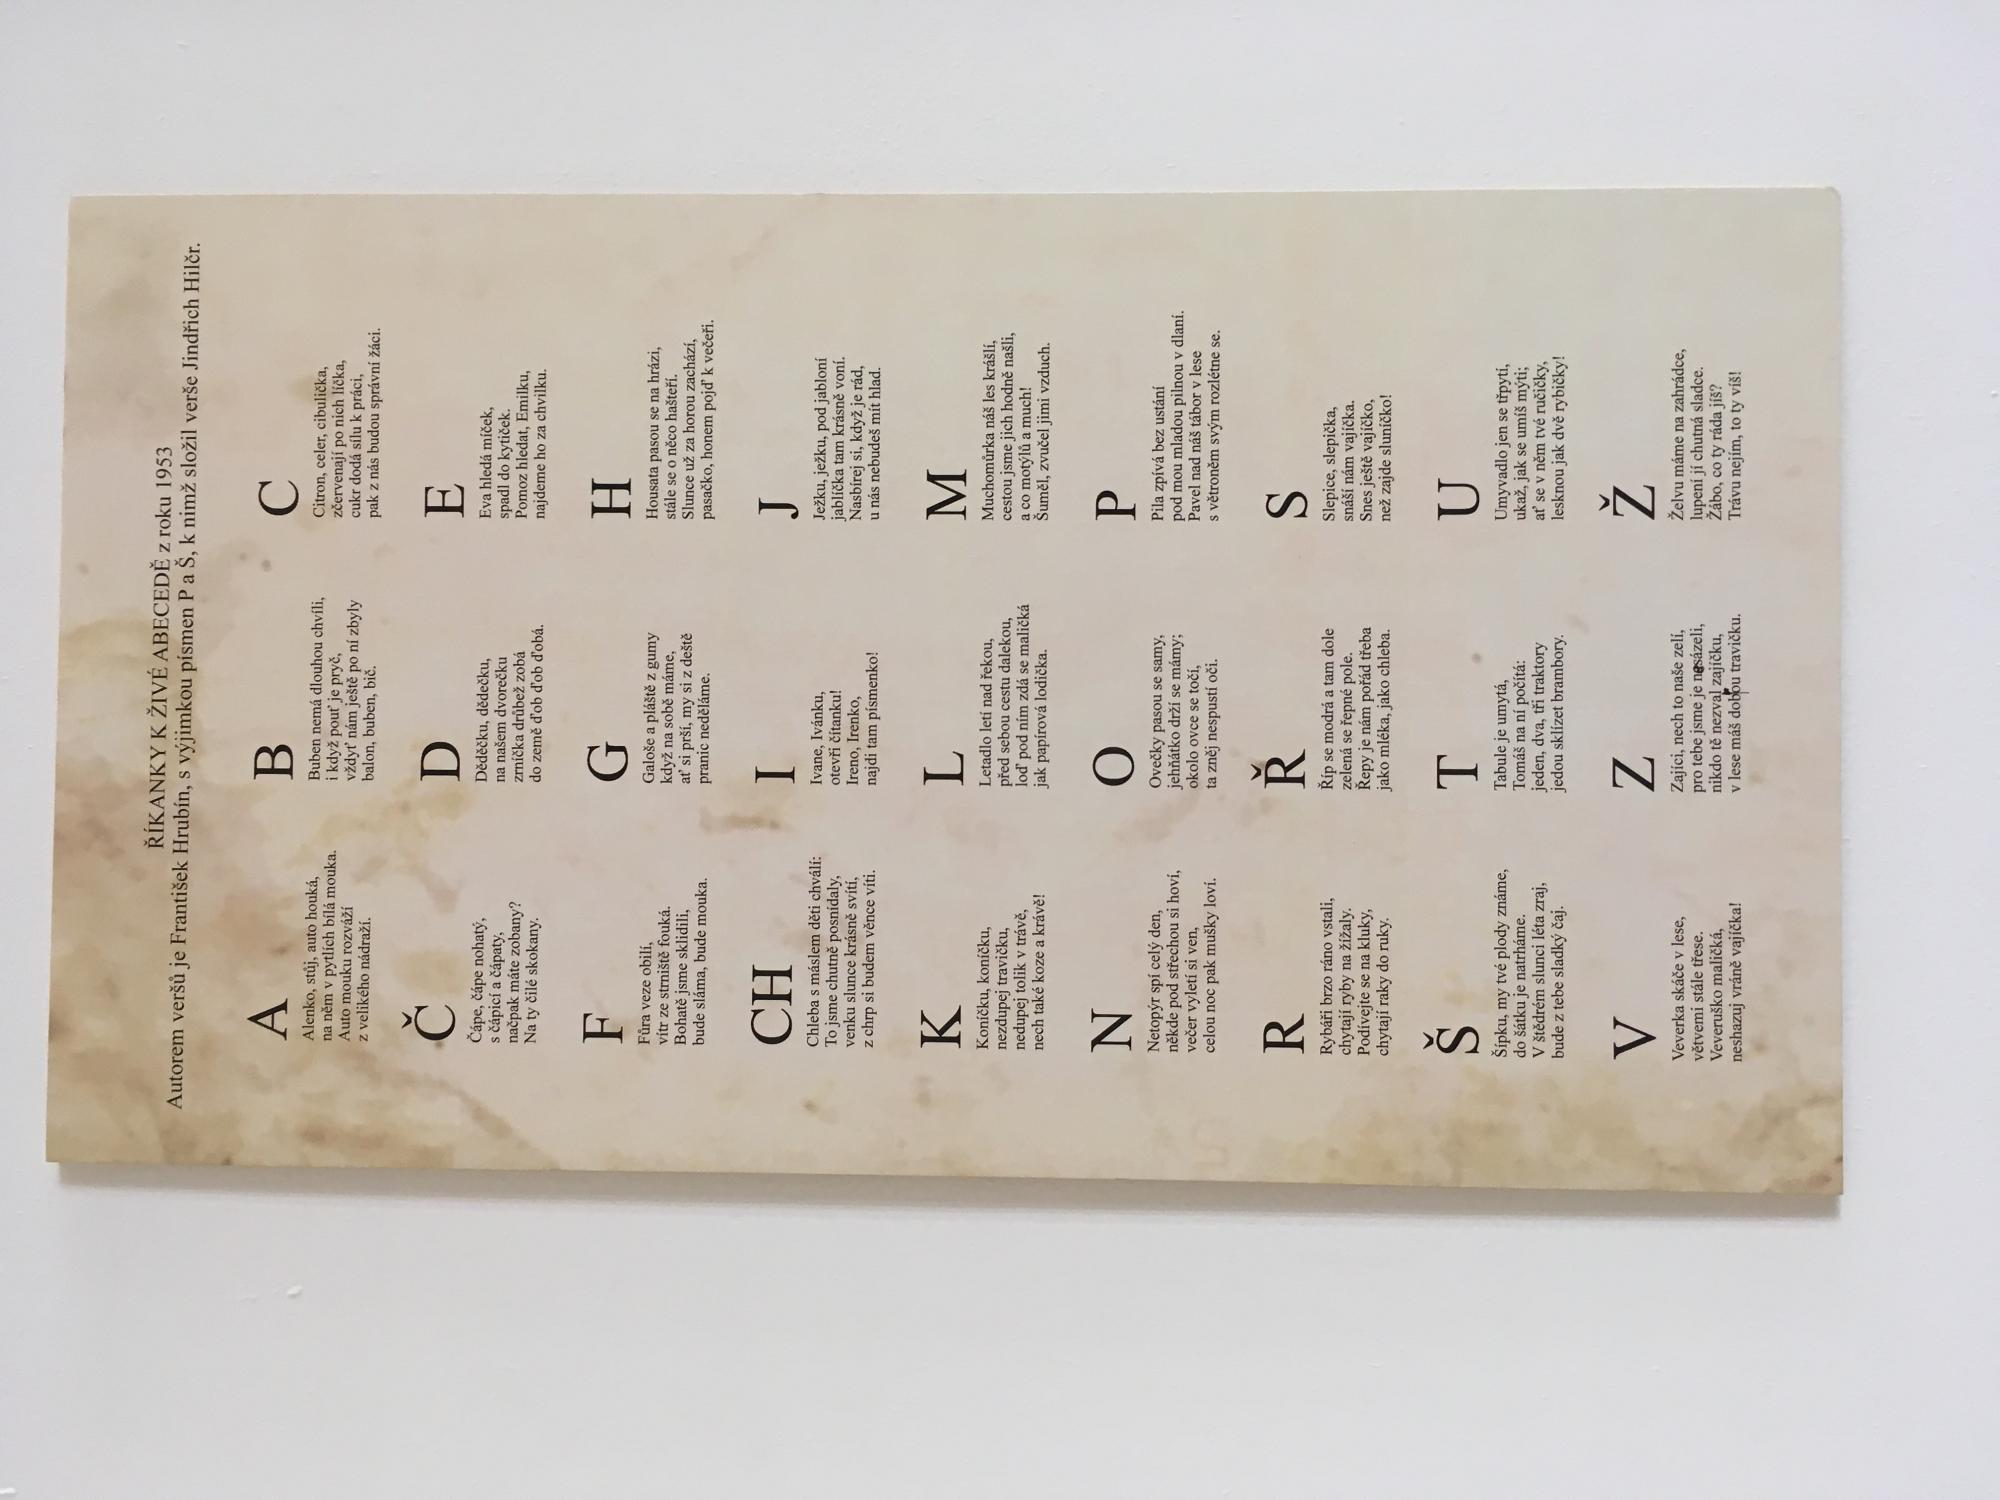 ŘÍKANKY K ŽIVÉ ABECEDĚ z roku 1953
Autorem veršů je František Hrubín, s výjimkou písmen P a Š, k nimž složil verše Jindřich Hilčr.
A
Alenko, stůj, auto houká,
na něm v pytlích bílá mouka.
Auto mouku rozváží
z velikého nádraží.
B
Buben nemá dlouhou chvíli,
i když pouť je pryč,
vždyť nám ještě po ní zbyly
balon, buben, bič.
C
Citron, celer, cibulička,
zčervenají po nich líčka,
cukr dodá sílu k práci,
pak z nás budou správní žáci.
Č
Čápe, čápe nohatý,
s čápicí a čápaty,
načpak máte zobany?
Na ty čilé skokany.
D
Dědečku, dědečku,
na našem dvorečku
zrníčka drůbež zobá
do země ďob ďob ďobá.
E
Eva hledá míček,
spadl do kytiček.
Pomoz hledat, Emilku,
najdeme ho za chvilku.
F
Fůra veze obilí,
vítr ze strniště fouká.
Bohatě jsme sklidili,
bude sláma, bude mouka.
G
Galoše a pláště z gumy
když na sobě máme,
ať si prší, my si z deště
pranic neděláme.
H
Housata pasou se na hrázi,
stále se o něco hašteří.
Slunce už za horou zachází,
pasačko, honem pojď k večeři.
CH
Chleba s máslem děti chválí:
To jsme chutně posnídaly,
venku slunce krásně svítí,
z chrp si budem věnce víti.
I
Ivane, Ivánku,
otevři čítanku!
Ireno, Irenko,
najdi tam písmenko!
J
Ježku, ježku, pod jabloní
jablíčka tam krásně voní.
Nasbírej si, když je rád,
u nás nebudeš mít hlad.
K
Koníčku, koníčku,
nezdupej travičku,
nedupej tolik v trávě,
nech také koze a krávě!
L
Letadlo letí nad řekou,
před sebou cestu dalekou,
loď pod ním zdá se maličká
jak papírová lodička.
M
Muchomůrka náš les krášlí,
cestou jsme jich hodně našli,
a co motýlů a much!
Šuměl, zvučel jimi vzduch.
N
Netopýr spí celý den,
někde pod střechou si hoví,
večer vyletí si ven,
celou noc pak mušky loví.
O
Ovečky pasou se samy,
jehňátko drží se mámy;
okolo ovce se točí,
ta zněj nespustí oči.
P
Pila zpívá bez ustání
pod mou mladou pilnou v dlaní.
Pavel nad náš tábor v lese
s větroněm svým rozlétne se.
R
Rybáři brzo ráno vstali,
chytají ryby na žížaly.
Podívejte se na kluky,
chytají raky do ruky.
Ř
Říp se modrá a tam dole
zelená se řepné pole.
Řepy je nám pořád třeba
jako mléka, jako chleba.
S
Slepice, slepička,
snáší nám vajíčka.
Snes ještě vajíčko,
než zajde sluníčko!
Š
Šípku, my tvé plody známe,
do šátku je natrháme.
V štědrém slunci léta zraj,
bude z tebe sladký čaj.
T
Tabule je umytá,
Tomáš na ní počítá:
jeden, dva, tři traktory
jedou sklízet brambory.
U
Umyvadlo jen se třpytí,
ukaž, jak se umíš mýti;
ať se v něm tvé ručičky,
lesknou jak dvě rybičky!
V
Veverka skáče v lese,
větvemi stále třese.
Veveruško maličká,
neshazuj vráně vajíčka!
Z
Zajíci, nech to naše zelí,
pro tebe jsme je nesázeli,
nikdo tě nezval zajíčku,
v lese máš dobou travičku.
Ž
Želvu máme na zahrádce,
lupení jí chutná sladce.
Žábo, co ty ráda jíš?
Trávu nejím, to ty víš!